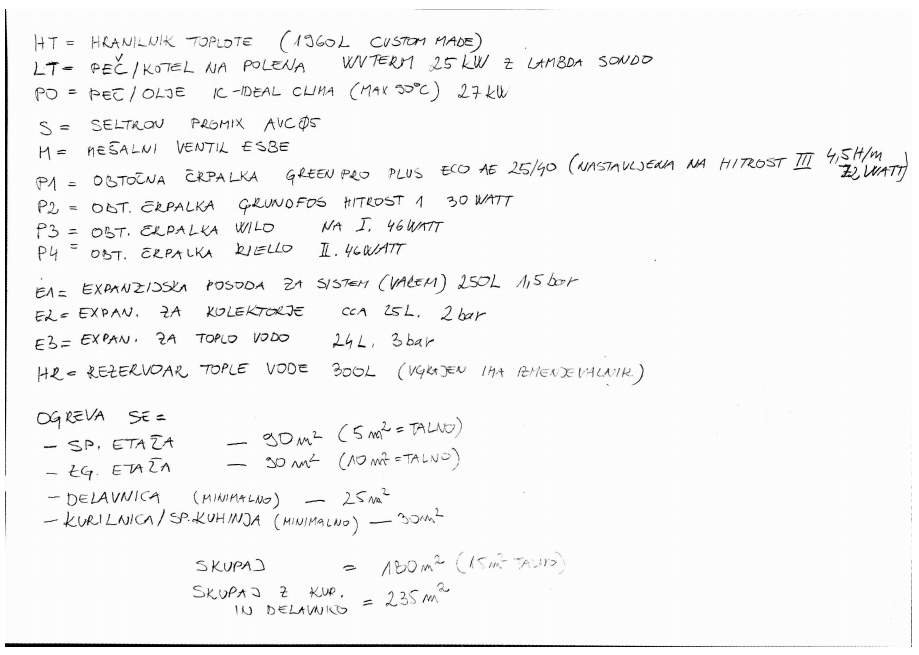 HT = HRANILNIK TOPLOTE (1960L CUSTOM MADE)
LT = PEČ/KOTEL NA POLENA WVTERM 25 KW Z LAMBDA SONDO
PO = PEČ/OLJE IC-IDEAL CLIMA (MAX 90°C) 27 KW
S = SELTRON PROMIX AVC05
M = MEŠALNI VENTIL ESBE
P1 = OBTOČNA ČRPALKA GREENPRO PLUS ECO AE 25/40 (NASTAVLJENA NA HITROST III 4,5H/m 22WATT)
P2 = OBT. ČRPALKA GRUNDFOS HITROST 1 30 WATT
P3 = OBT. ČRPALKA WILO NA I. 46WATT
P4 = OBT. ČRPALKA RIELLO II. 46WATT
E1 = EXPANZIJSKA POSODA ZA SISTEM (VAREM) 250L 1,5 bar
E2 = EXPAN. ZA KOLEKTORJE CCA 25L. 2 bar
E3 = EXPAN. ZA TOPLO VODO 24L. 3 bar
HR = REZERVOAR TOPLE VODE 300L (VGRAJEN IMA IZMENJEVALNIK)
OGREVA SE =
- SP. ETAŽA - 90 m² (5 m² = TALNO)
- ZG. ETAŽA - 90 m² (10 m² = TALNO)
- DELAVNICA (MINIMALNO) - 25 m²
- KURILNICA/SP.KUHINJA (MINIMALNO) - 30 m²
SKUPAJ = 180 m² (15 m² TALNO)
SKUPAJ Z KUR.
IN DELAVNICO = 235 m²